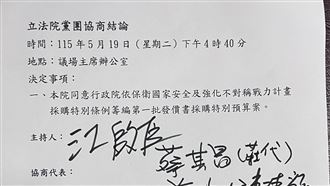 立法院黨團協商結論
時間：115年5月19日（星期二）下午4時40分
地點：議場主席辦公室
決定事項：
一、本院同意行政院依保衛國家安全及強化不對稱戰力計畫
採購特別條例籌編第一批發價書採購特別預算案。
主持人：江啟臣
蔡其昌(莊代)
協商代表：